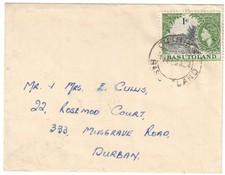 1d
BASUTOLAND
LAND
Mr & Mrs E. Cullis,
22, Rosemod Court,
333, Musgrave Road,
Durban.